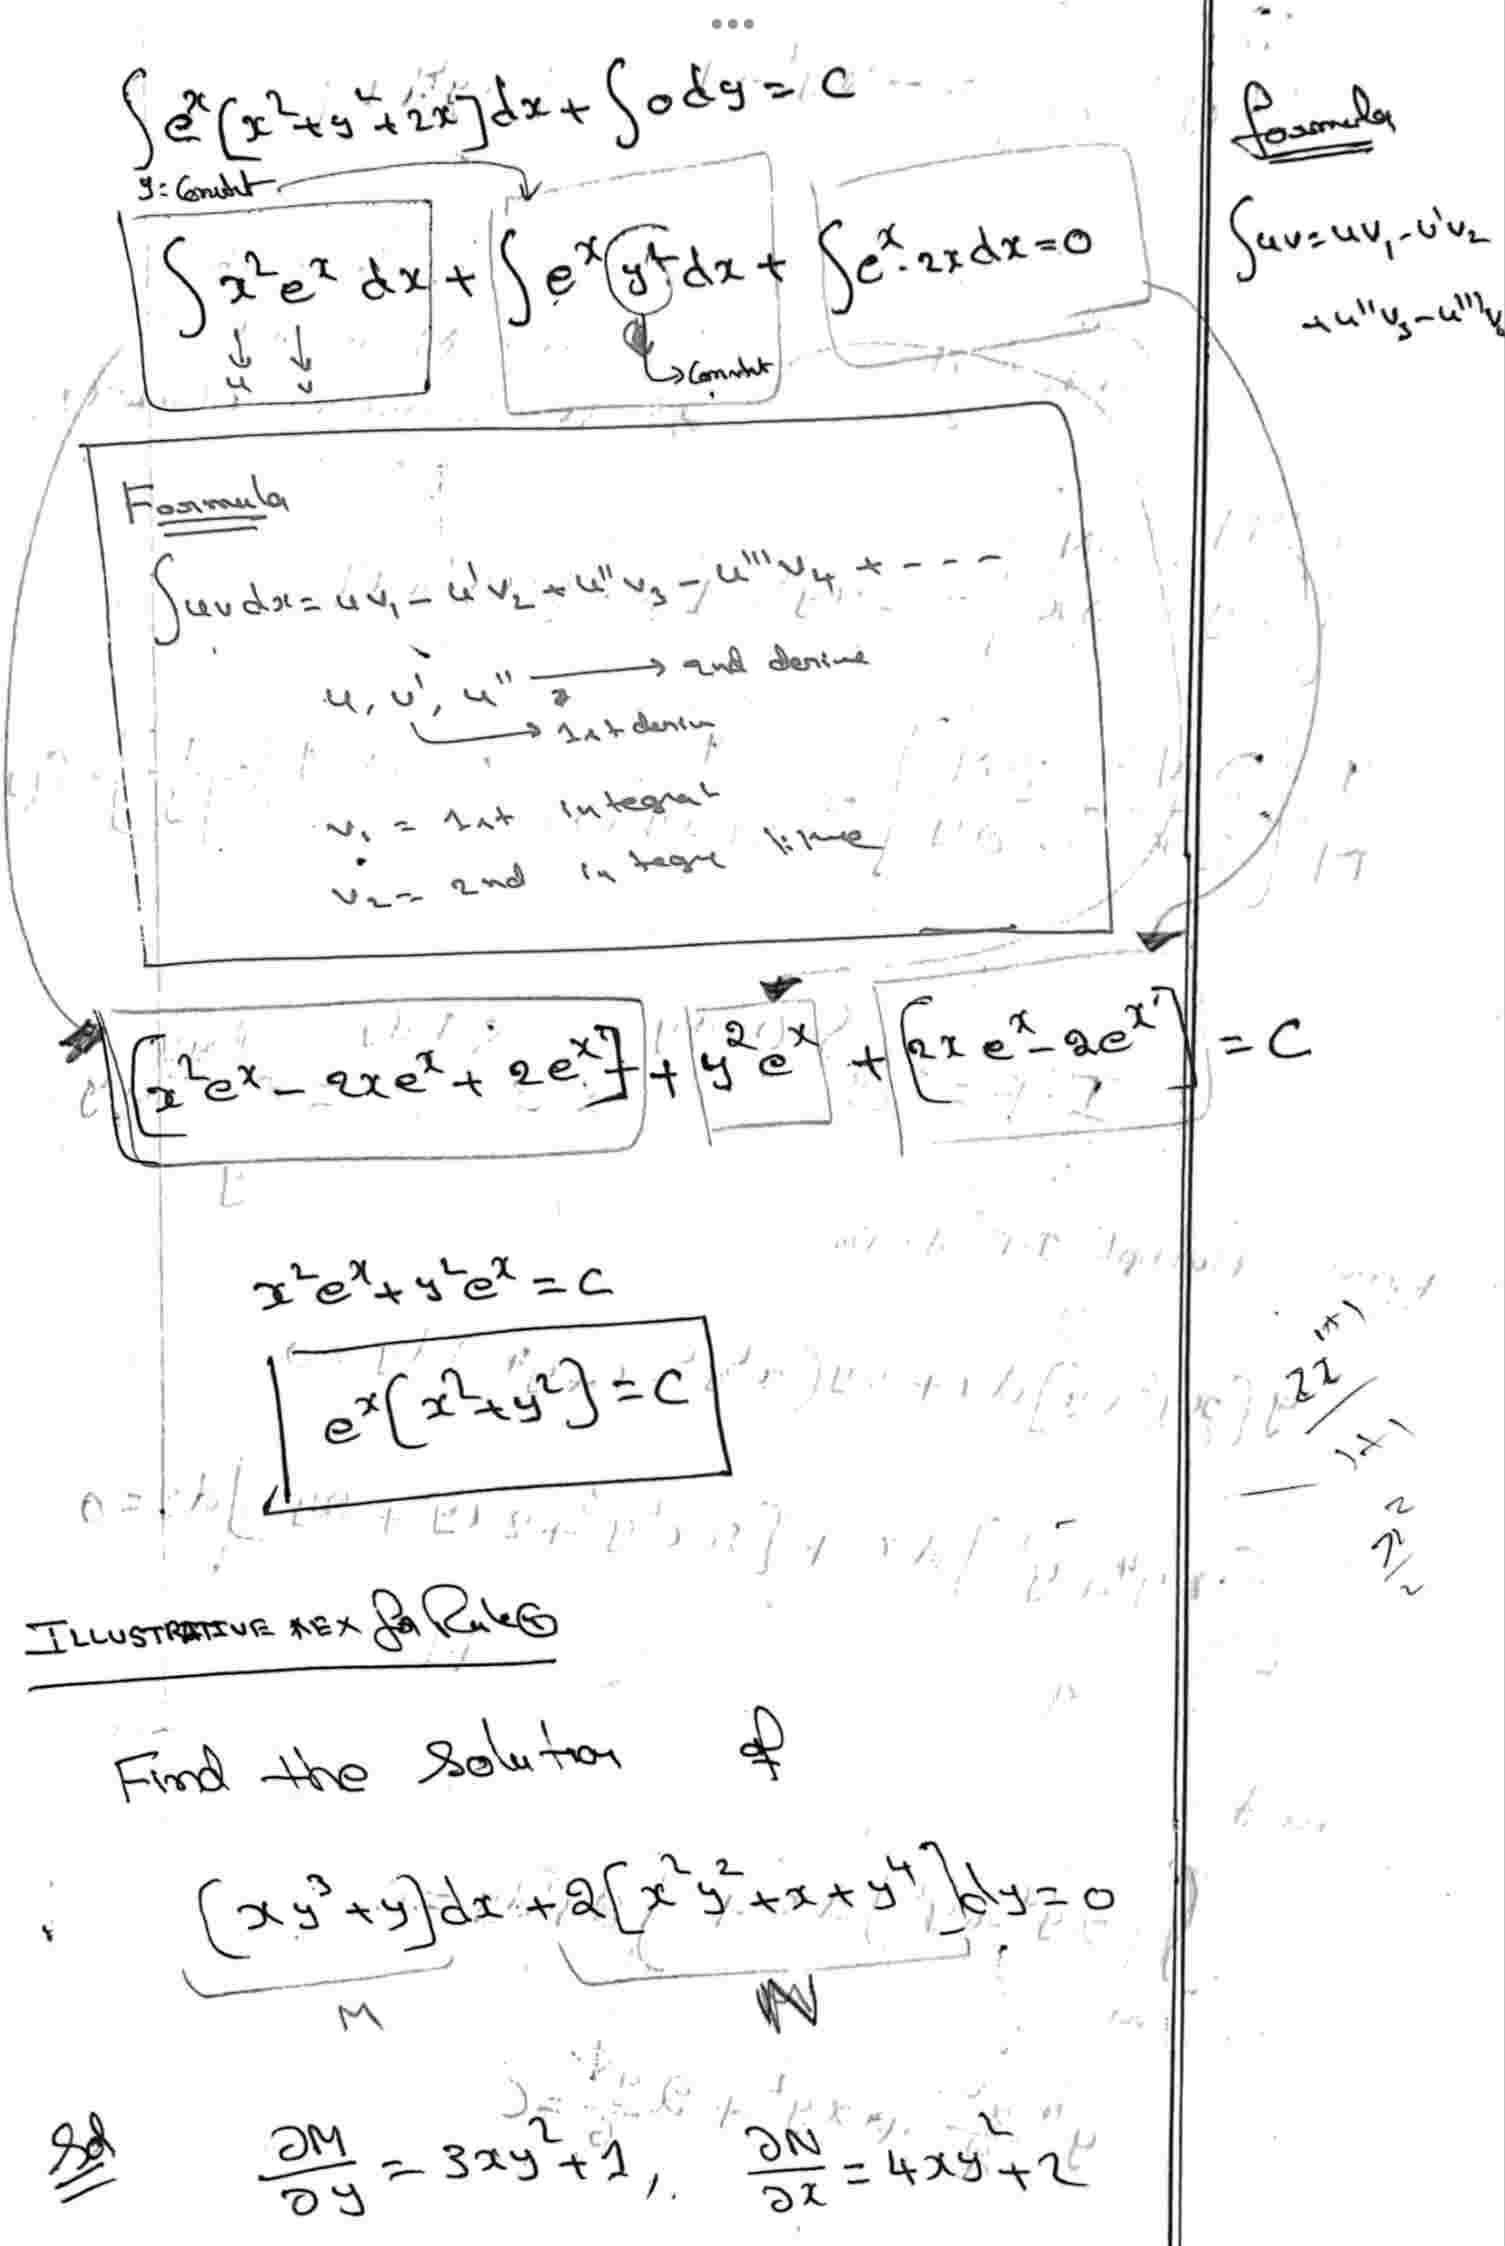 ∫ eˣ[x²+y²+2x]dx + ∫ 0 dy = C
y = Constnt
∫ x² eˣ dx + ∫ eˣ y² dx + ∫ eˣ·2x dx = 0
u v
→ Constnt
Formula
∫ uv dx = uv₁ - u'v₂ + u''v₃ - u'''v₄ + - - -
u, u', u'' → 2nd
→ 1st
v₁ = 1st integral
v₂ = 2nd
[x²eˣ - 2xeˣ + 2eˣ] + y²eˣ + [2x eˣ - 2eˣ] = C
x²eˣ + y²eˣ = C
eˣ[x²+y²] = C
ILLUSTRATIVE EX for Rule
Find the Solution of
(xy³+y)dx + 2[x²y²+x+y⁴]dy = 0
M N
Sol ∂M/∂y = 3xy²+1, ∂N/∂x = 4xy²+2
formula
∫uv = uv₁ - u'v₂
+ u''v₃ - u'''v₄